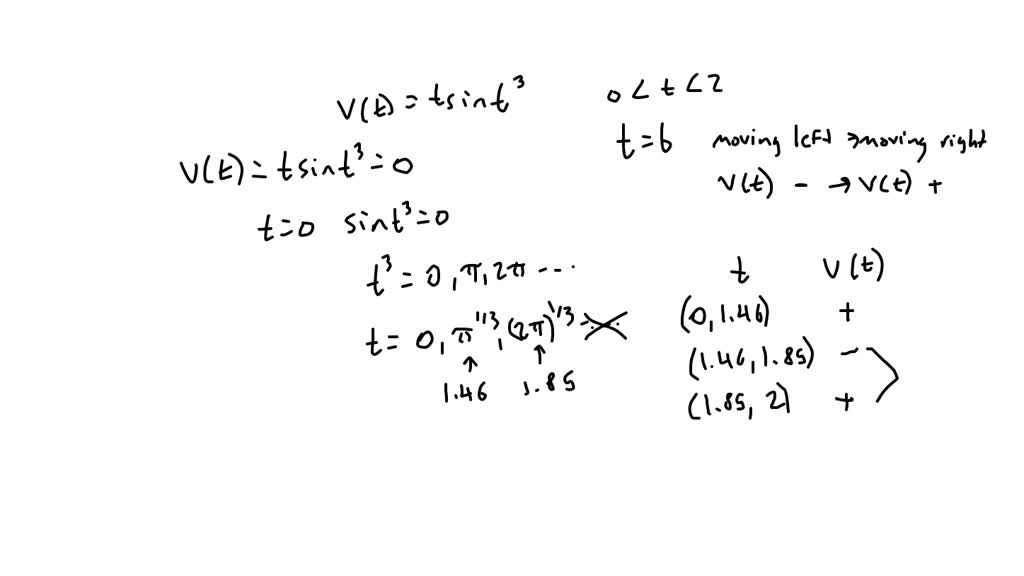 v(t) = t sin t³
0 < t < 2
t = b moving left → moving right
v(t) - → v(t) +
v(t) = t sin t³ = 0
t = 0 sin t³ = 0
t³ = 0, π, 2π ...
t = 0, π^1/3, (2π)^1/3
↑ ↑
1.46 1.85
t v(t)
(0, 1.46) +
(1.46, 1.85) -
(1.85, 2) +